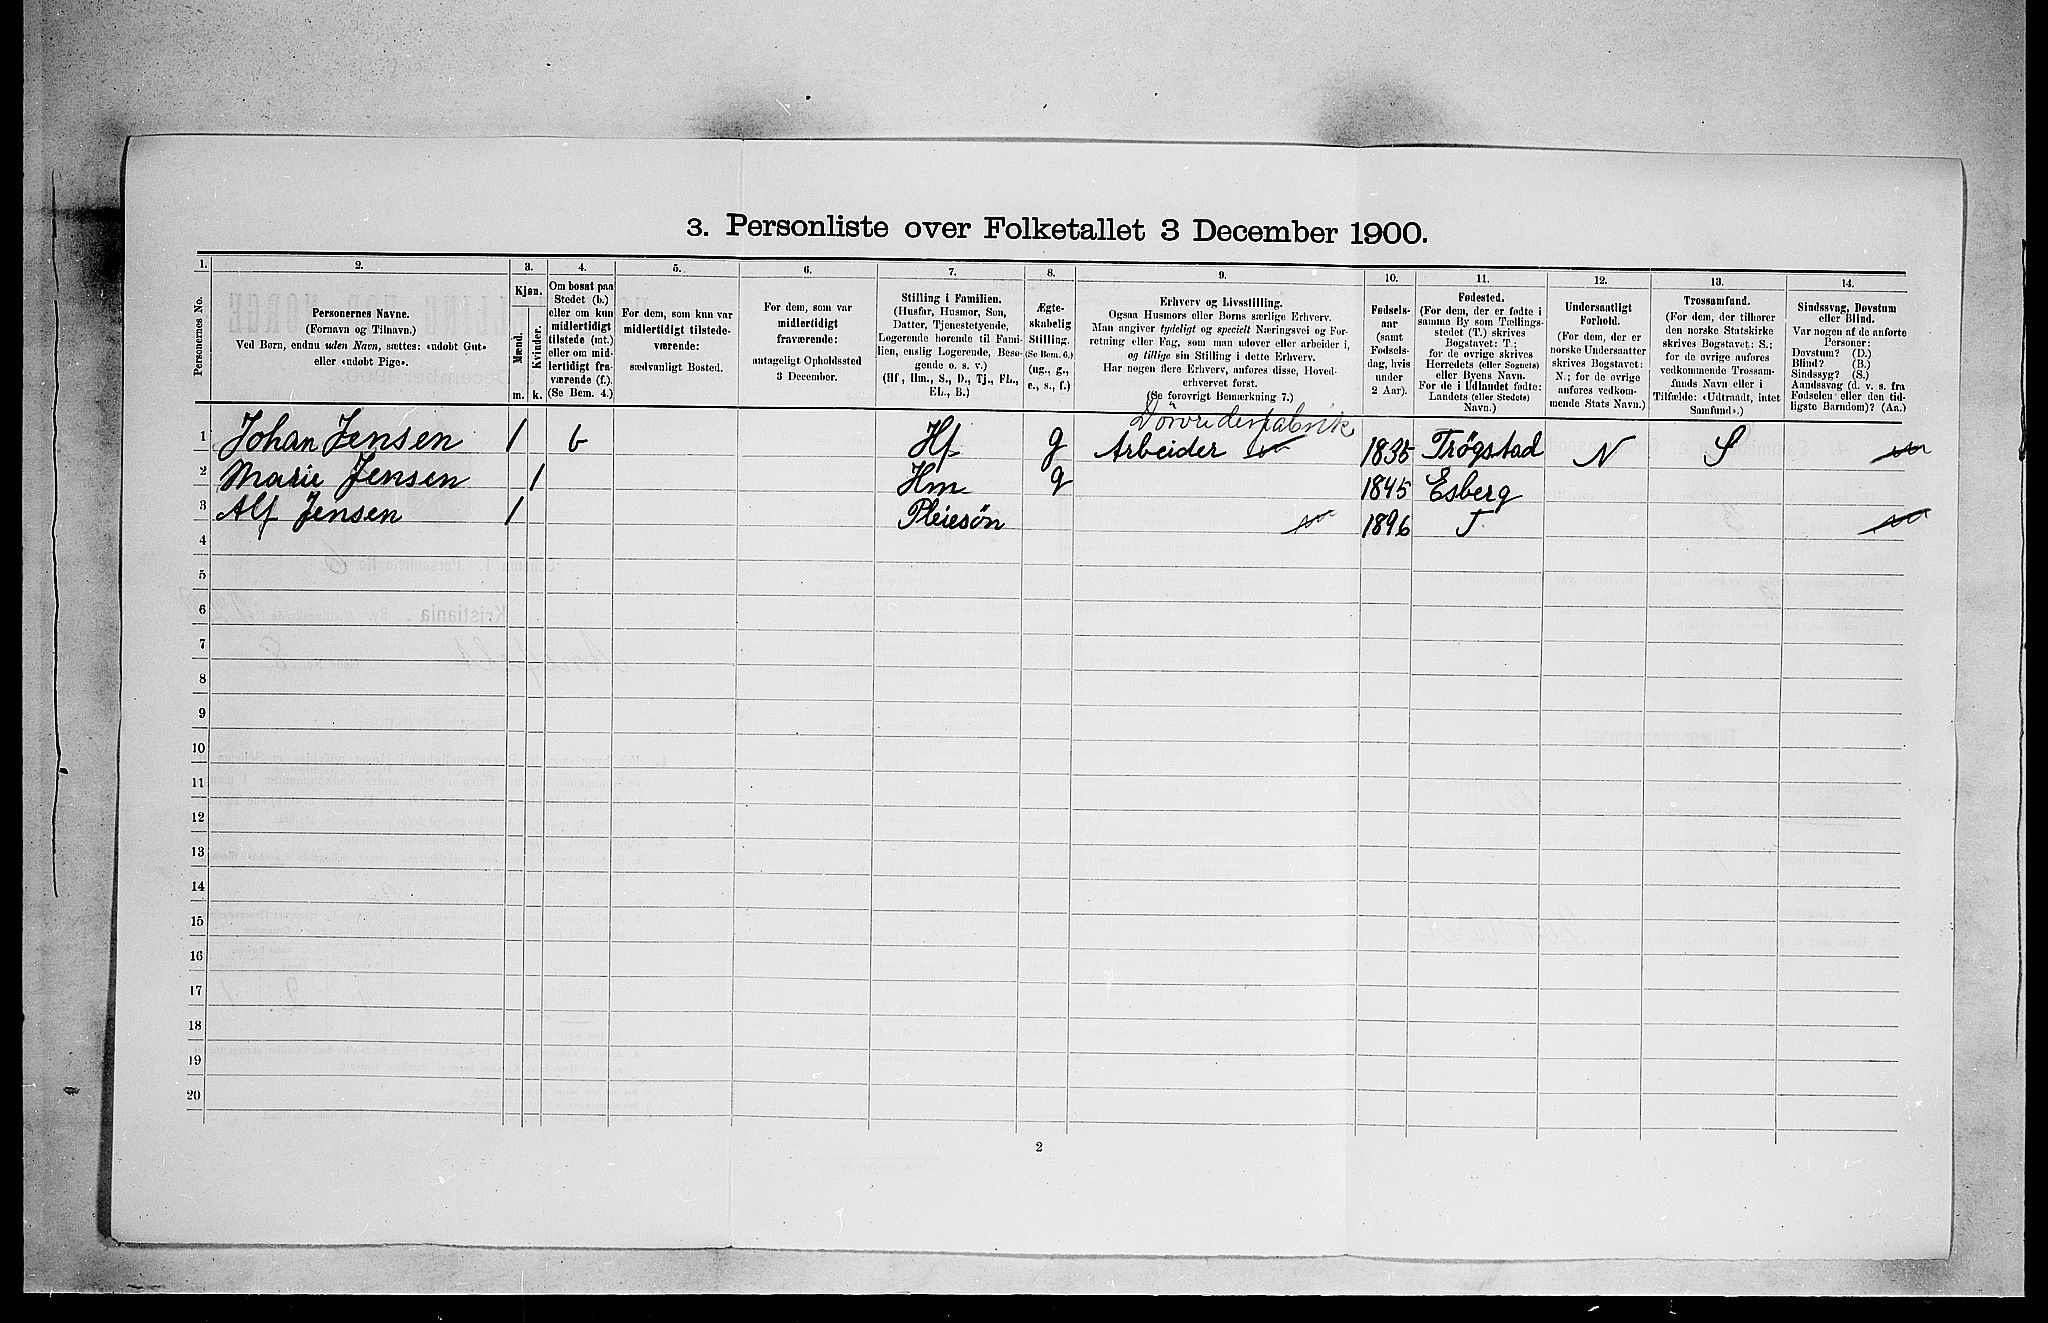 3. Personliste over Folketallet 3 December 1900.
1. 2. 3. 4. 5. 6. 7. 8. 9. 10. 11. 12. 13. 14.
Personernes No.
Personernes Navne.
(Fornavn og Tilnavn.)
Ved Børn, endnu uden Navn, sættes: «udøbt Gut»
eller «udøbt Pige».
Kjøn.
Mænd.
Kvinder.
m. k.
Om bosat paa
Stedet (b.)
eller om kun
midlertidigt
tilstede (mt.)
eller om mid-
lertidigt fra-
værende (f.)
(Se Bem. 4.)
For dem, som kun var
midlertidigt tilstede-
værende:
sædvanligt Bosted.
For dem, som var
midlertidigt
fraværende:
antageligt Opholdssted
3 December.
Stilling i Familien.
(Husfar, Husmor, Søn,
Datter, Tjenestetyende,
Logerende hørende til Fami-
lien, enslig Logerende, Besø-
gende o. s. v.)
(Hf, Hm., S., D., Tj., FL.,
EL., B.)
Ægte-
skabelig
Stilling.
(Se Bem. 6.)
(ug., g.,
e., s., f.)
Erhverv og Livsstilling.
Ogsaa Husmors eller Børns særlige Erhverv.
Man angiver tydeligt og specielt Næringsvei og For-
retning eller Fag, som man udøver eller arbeider i,
og tillige sin Stilling i dette Erhverv.
Har nogen flere Erhverv, anføres disse, Hoved-
erhvervet først.
(Se forøvrigt Bemærkning 7.)
Fødsels-
aar
(samt
Fødsels-
dag, hvis
under
2 Aar).
Fødested.
(For dem, der er fødte i
samme By som Tællings-
stedet (T.) skrives
Bogstavet: T;
for de øvrige skrives
Herredets (eller Sognets)
eller Byens Navn.
For de i Udlandet fødte:
Landets (eller Stedets)
Navn.)
Undersaatligt
Forhold.
(For dem, der er
norske Undersaatter
skrives Bogstavet:
N.; for de øvrige
anføres vedkom-
mende Stats Navn.)
Trossamfund.
(For dem, der tilhører
den norske Statskirke
skrives Bogstavet: S.;
for de øvrige anføres
vedkommende Trossam-
funds Navn eller i
Tilfælde: «Udtraadt, intet
Samfund».)
Sindssvag, Døvstum
eller Blind.
Var nogen af de anførte
Personer:
Døvstum? (D.)
Blind? (B.)
Sindssyg? (S.)
Aandssvag (d. v. s. fra
Fødselen eller den tid-
ligste Barndom)? (Aa.)
1 Johan Jensen 1 b Hf g Arbeider 1835 Trøgstad N S
2 Marie Jensen 1 Hm g 1845 Esberg
3 Alf Jensen 1 Pleiesøn 1896 T
4
5
6
7
8
9
10
11
12
13
14
15
16
17
18
19
20
2